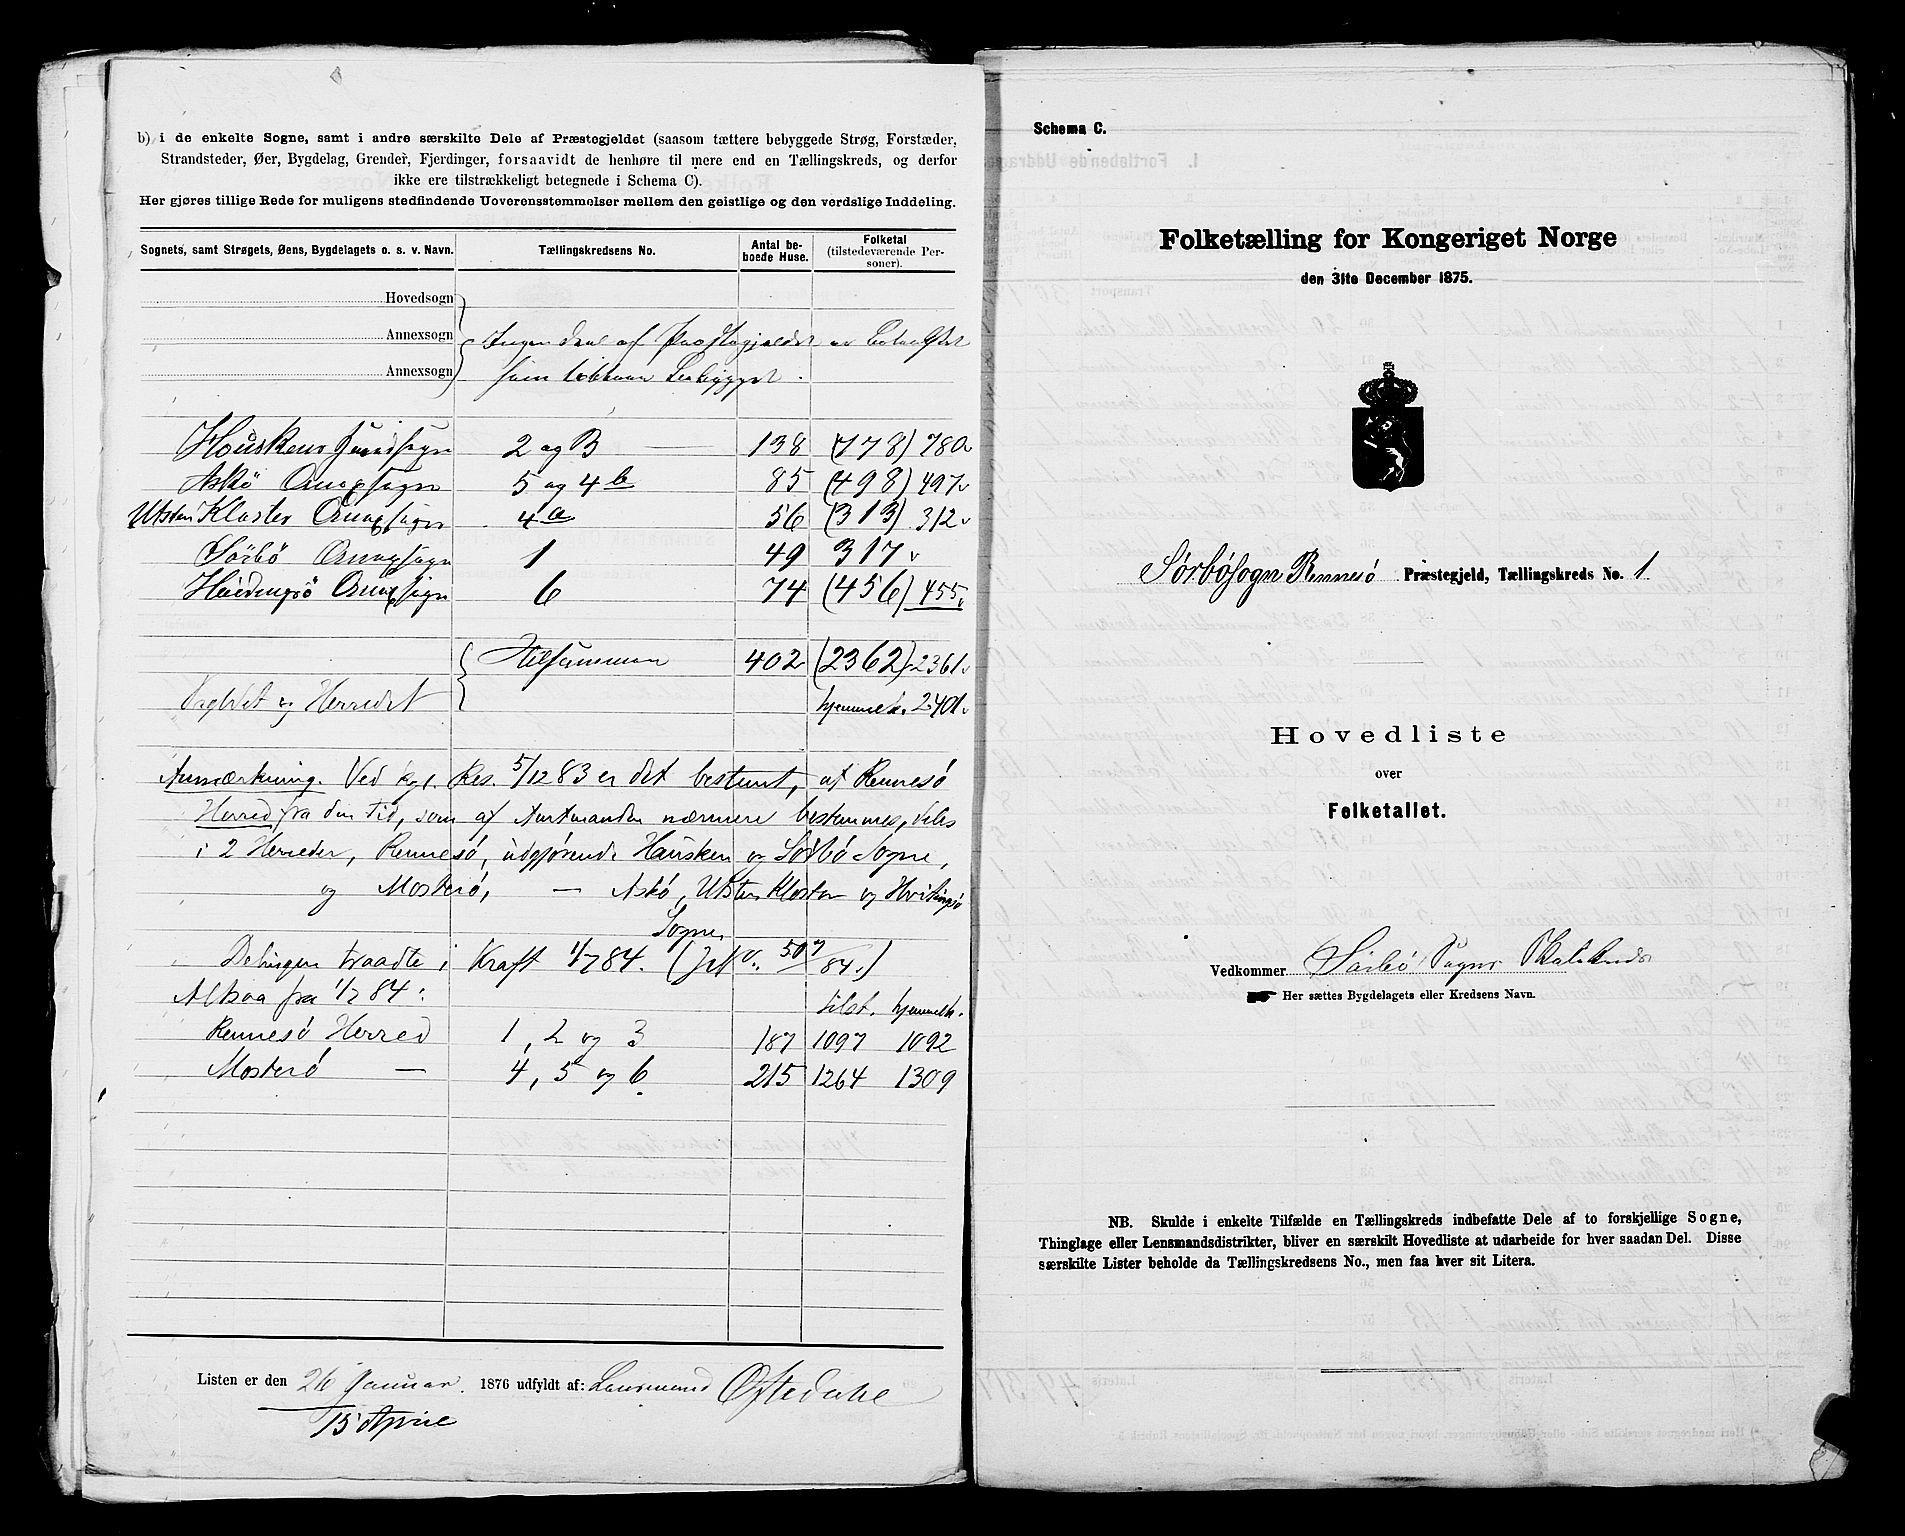 b) i de enkelte Sogne, samt i andre særskilte Dele af Præstegjeldet (saasom tættere bebyggede Strøg, Forstæder,
Strandsteder, Øer, Bygdelag, Grender, Fjerdinger, forsaavidt de henhøre til mere end en Tællingskreds, og derfor
ikke ere tilstrækkeligt betegnede i Schema C).
Her gjøres tillige Rede for muligens stedfindende Uoverensstemmelser mellem den geistlige og den verdslige Inddeling.
Sognets, samt Strøgets, Øens, Bygdelagets o. s. v. Navn. Tællingskredsens No. Antal beboede Huse. Folketal (tilstedeværende Personer).
Hovedsogn
Annexsogn Ingen Deel af Præstegjeldet er
Annexsogn som Bebygget.
2 og 3 138 (778) 780
Askö Annexsogn 5 og 4b 85 (498) 497
Utsten Kloster Annexsogn 4a 56 (313) 312
Sörbö Annexsogn 1 49 317
Annexsogn 6 74 (456) 455
Tilsammen 402 (2362) 2361
og Herredet hjemmeh. 2401
Anmærkning. Ved kgl. Res. 5/12 83 er det bestemt, at Rennesö
Herred fra den tid, som af Amtmanden nærmere bestemmes, deles
i 2 Herreder, Rennesö, udgjörende Hausken og Sörbö Sogne,
og Mosterö, — Askö, Utsten Kloster og Hvitingsö
Sogne
Delingen traadte i Kraft 1/7 84. (
Altsaa fra 1/7 84: tilst. hjemmeh.
Rennesö Herred 1, 2 og 3 187 1097 1092
Mosterö — 4, 5 og 6. 215 1264 1309
Listen er den 26 Januar 1876 udfyldt af: Lensmand Oftedahl
15 April
Schema C.
Folketælling for Kongeriget Norge
den 31te December 1875.
Sörbö Sogn Rennesö Præstegjeld, Tællingskreds No. 1
Hovedliste
over
Folketallet.
Vedkommer Sörbö Sogns
Her sættes Bygdelagets eller Kredsens Navn.
NB. Skulde i enkelte Tilfælde en Tællingskreds indbefatte Dele af to forskjellige Sogne,
Thinglage eller Lensmandsdistrikter, bliver en særskilt Hovedliste at udarbeide for hver saadan Del. Disse
særskilte Lister beholde da Tællingskredsens No., men faa hver sit Litera.